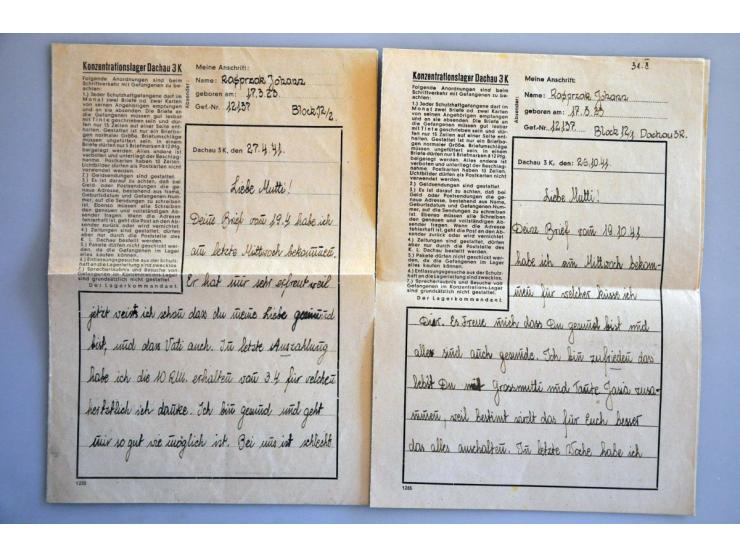 Konzentrationslager Dachau 3 K
Folgende Anordnungen sind beim
Schriftverkehr mit Gefangenen zu be-
achten:
1.) Jeder Schutzhaftgefangene darf im
Monat zwei Briefe od. zwei Karten
von seinen Angehörigen empfangen
und an sie absenden. Die Briefe an
die Gefangenen müssen gut lesbar
mit Tinte geschrieben sein und dür-
fen nur 15 Zeilen auf einer Seite ent-
halten. Gestattet ist nur ein Briefbo-
gen normaler Größe. Briefumschläge
müssen ungefüttert sein. In einem
Briefe dürfen nur 5 Briefmarken à 12 Pfg.
beigelegt werden. Alles andere ist
verboten und unterliegt der Beschlag-
nahme. Postkarten haben 10 Zeilen.
Lichtbilder dürfen als Postkarten nicht
verwendet werden.
2.) Geldsendungen sind gestattet.
3.) Es ist darauf zu achten, daß bei
Geld- oder Postsendungen die ge-
naue Adresse, bestehend aus Name,
Geburtsdatum und Gefangenen-Num-
mer, auf die Sendungen zu schreiben
ist.
4.) Zeitungen sind gestattet, dürfen
aber nur durch die Poststelle des
K. L. Dachau bestellt werden.
5.) Pakete dürfen nicht geschickt wer-
den, da die Gefangenen im Lager
alles kaufen können.
6.) Entlassungsgesuche aus der Schutz-
haft an die Lagerleitung sind zwecklos.
7.) Sprecherlaubnis und Besuche von
Gefangenen im Konzentrations-Lager
sind grundsätzlich nicht gestattet.
Der Lagerkommandant
Absender:
Meine Anschrift:
Name: Rasprzak Johann
geboren am: 17.3.23
Gef.-Nr. 12137
Block 12/2.
Dachau 3 K, den 27.4.41.
Liebe Mutti!
Deine Brief vom 19.4 habe ich
am letzte Mittwoch bekommen.
Er hat mir sehr erfreut weil
jetzt weiss ich schon das du meine Liebe gesund
bist, und das Vati auch. In letzte Auszahlung
habe ich die 10 RM. erhalten vom 3.4 für welchen
herzlich ich danke. Ich bin gesund und geht
mir so gut wie möglich ist. Bei uns ist schlecht
1235
31.8
Konzentrationslager Dachau 3 K
Folgende Anordnungen sind beim
Schriftverkehr mit Gefangenen zu be-
achten:
1.) Jeder Schutzhaftgefangene darf im
Monat zwei Briefe od. zwei Karten
von seinen Angehörigen empfangen
und an sie absenden. Die Briefe an
die Gefangenen müssen gut lesbar
mit Tinte geschrieben sein und dür-
fen nur 15 Zeilen auf einer Seite ent-
halten. Gestattet ist nur ein Briefbo-
gen normaler Größe. Briefumschläge
müssen ungefüttert sein. In einem
Briefe dürfen nur 5 Briefmarken à 12 Pfg.
beigelegt werden. Alles andere ist
verboten und unterliegt der Beschlag-
nahme. Postkarten haben 10 Zeilen.
Lichtbilder dürfen als Postkarten nicht
verwendet werden.
2.) Geldsendungen sind gestattet.
3.) Es ist darauf zu achten, daß bei
Geld- oder Postsendungen die ge-
naue Adresse, bestehend aus Name,
Geburtsdatum und Gefangenen-Num-
mer, auf die Sendungen zu schreiben
ist.
4.) Zeitungen sind gestattet, dürfen
aber nur durch die Poststelle des
K. L. Dachau bestellt werden.
5.) Pakete dürfen nicht geschickt wer-
den, da die Gefangenen im Lager
alles kaufen können.
6.) Entlassungsgesuche aus der Schutz-
haft an die Lagerleitung sind zwecklos.
7.) Sprecherlaubnis und Besuche von
Gefangenen im Konzentrations-Lager
sind grundsätzlich nicht gestattet.
Der Lagerkommandant
Absender:
Meine Anschrift:
Name: Rasprzak Johann
geboren am: 17.3.23
Gef.-Nr. 12137
Block 12/1 Dachau 3K.
Dachau 3 K, den: 26.10.41.
Liebe Mutti!
Deine Brief vom 19.10.41
habe ich am Mittwoch bekom-
men für welcher küsse ich
Dier. Es Freue mich das Du gesund bist und
alle sind auch gesunde. Ich bin zufrieden das
lebst Du mit Grossmutti und Tante Jasia zusa-
mmen, weil bestimt wirdt das für Euch besser
das alles auschalten. In letzte Woche habe ich
1235